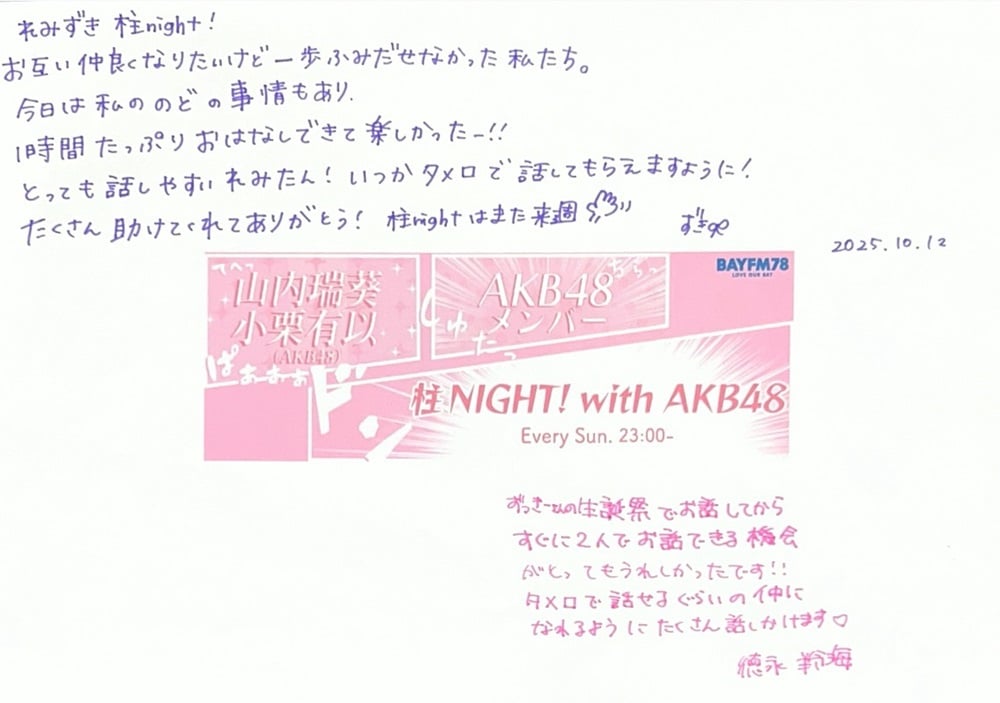 れみずき 柱night!
お互い仲良くなりたいけど一歩ふみだせなかった私たち。
今日は私ののどの事情もあり、
1時間たっぷりおはなしできて楽しかったー!!
とっても話しやすいれみたん!いつかタメ口で話してもらえますように!
たくさん助けてくれてありがとう! 柱nightはまた来週
ずき
2025.10.12
てへっ
山内瑞葵
小栗有以
(AKB48)
ぱぁぁぁぁ
ちらっ
AKB48
メンバー
しゅたっ
BAYFM78
LOVE OUR BAY
ドン
柱NIGHT! with AKB48
Every Sun. 23:00-
ずっきーさんの生誕祭でお話してから
すぐに2人でお話できる機会
がとってもうれしかったです!!
タメ口で話せるぐらいの仲に
なれるようにたくさん話しかけます♡
徳永羚海